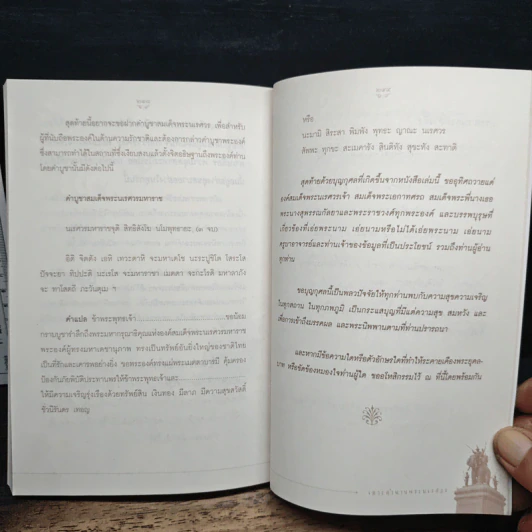 สุดท้ายนี้อยากจะขอฝากคำบูชาสมเด็จพระนเรศวร เพื่อสำหรับ
ผู้ที่นับถือพระองค์ในด้านความรักชาติและต้องการกล่าวคำบูชาพระองค์
ซึ่งสามารถทำได้ในสถานที่ซึ่งเงียบสงบแล้วตั้งจิตอธิษฐานถึงพระองค์ท่าน
โดยคำบูชานั้นมีดังต่อไปนี้
คำบูชาสมเด็จพระนเรศวรมหาราช
นเรศวรมหาราชจุติ อิทธิฤทธิ นโมพุทธายะ (๓ จบ)
คำแปล ข้าพระพุทธเจ้า ขอน้อม
กราบบูชารำลึกถึงพระมหากรุณาธิคุณแห่งองค์สมเด็จพระนเรศวรมหาราช
พระองค์ผู้ทรงมหาเดชานุภาพ ทรงเป็นทรัพย์อันยิ่งใหญ่ของชาติไทย
เป็นที่รักและเคารพอย่างยิ่ง ขอพระองค์ทรงแผ่พระเมตตาบารมี คุ้มครอง
ป้องกันภัยพิบัติประทานพรให้ข้าพระพุทธเจ้าและ
ให้มีความเจริญรุ่งเรืองด้วยทรัพย์สิน เงินทอง มีลาภ มีความสุขสวัสดิ์
ชั่วนิรันดร เทอญ
หรือ
นะมามิ สิระสา พิมพัง พุทธะ ญาณะ นเรศวร
สัพพะ ทุกขะ สะเมคารัง สินติทัง สุขะพัง สะทาติ
สุดท้ายด้วยบุญกุศลที่เกิดขึ้นจากหนังสือเล่มนี้ ขออุทิศถวายแด่
องค์สมเด็จพระนเรศวรเจ้า สมเด็จพระเอกาทศรถ สมเด็จพระพี่นางเธอ
พระนางสุพรรณกัลยาและพระราชวงศ์ทุกพระองค์ และบรรพบุรุษที่
เกี่ยวข้องที่เอ่ยพระนาม เอ่ยนามหรือไม่ได้เอ่ยพระนาม เอ่ยนาม
ครูบาอาจารย์และท่านเจ้าของข้อมูลที่เป็นประโยชน์ รวมถึงท่านผู้อ่าน
ทุกท่าน
ขอบุญกุศลนี้เป็นพลวปัจจัยให้ทุกท่านพบกับความสุขความเจริญ
ในทุกสถาน ในทุกภพภูมิ เป็นกระแสบุญที่มีแต่ความสุข สมหวัง และ
เพื่อการเข้าถึงมรรคผล และพระนิพพานตามที่ท่านปรารถนา
และหากมีข้อความใดหรือตัวอักษรใดที่ทำให้ระคายเคืองพระยุคล-
บาท หรือขัดข้องหมองใจท่านผู้ใด ขออโหสิกรรมไว้ ณ ที่นี้โดยพร้อมกัน